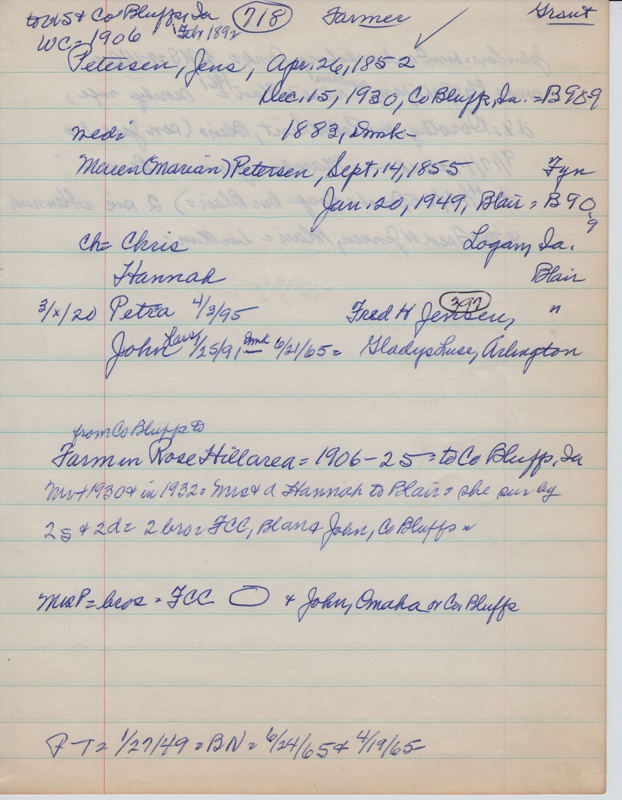 to US & Co Bluffs, Ia (718) Farmer Grant
WC = 1906 Feb 1892
Petersen, Jens, Apr. 26, 1852
Dec. 15, 1930, Co Bluffs, Ia. = B 959
med: 1883, Dmk-
Maren (Marian) Petersen, Sept. 14, 1855 Fyn
Jan. 20, 1949, Blair = B 90-9
Ch = Chris Logan, Ia.
Hannah Blair
3/x/20 Petra 4/3/95 Fred H Jensen, (397) "
John Lars 1/25/91, Dmk 6/21/65 = Gladys Luse, Arlington
from Co Bluffs to
Farm in Rose Hill area = 1906-25 = to Co Bluffs, Ia
Mr + 1930 & in 1932 = Mrs & d Hannah to Blair = she sur by
2s & 2d = 2 bro = FCC, Blair & John, Co Bluffs
Mrs P = bros = FCC & John, Omaha or Co Bluffs
P-T = 1/27/49 = BN = 6/24/65 & 4/19/65